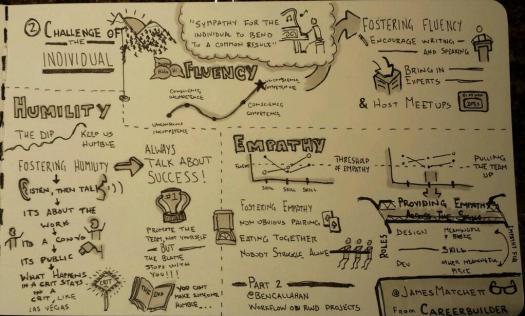 ② CHALLENGE OF
THE
INDIVIDUAL
"SYMPATHY FOR THE
INDIVIDUAL TO BEND
TO A COMMON RESULT"
FOSTERING FLUENCY
ENCOURAGE WRITING
AND SPEAKING
BRING IN
EXPERTS
& HOST MEETUPS
FLUENCY
CONSCIOUS
INCOMPETENCE
UNCONSCIOUS
INCOMPETENCE
COMPETENCE
CONSCIENCE
COMPETENCY
HUMILITY
THE DIP
KEEP US
HUMBLE
FOSTERING HUMILITY
LISTEN, THEN TALK
ITS ABOUT THE
WORK
ITS A CONVO
ITS PUBLIC
WHAT HAPPENS
IN A CRIT STAYS
IN A
CRIT, LIKE
LAS VEGAS
CRIT
ALWAYS
TALK ABOUT
SUCCESS!
#1
PROMOTE THE
TEAM, NOT YOURSELF
BUT
THE BLAME
STOPS WITH
YOU!!!!
THE END
YOU CAN'T
MAKE SOMEONE
HUMBLE...
EMPATHY
FLUENCY
SKILL SKILL SKILL
THRESHOLD
OF EMPATHY
PULLING
THE TEAM
UP
FOSTERING EMPATHY
NON OBVIOUS PAIRING
EATING TOGETHER
NOBODY STRUGGLE ALONE
PROVIDING EMPATHY
ACROSS THE SKILLS
ROLES
DESIGN
SKILL
DEV
PART 2
@BENCALLAHAN
WORKFLOW ON RWD PROJECTS
@JAMESMATCHETT
FROM CAREERBUILDER